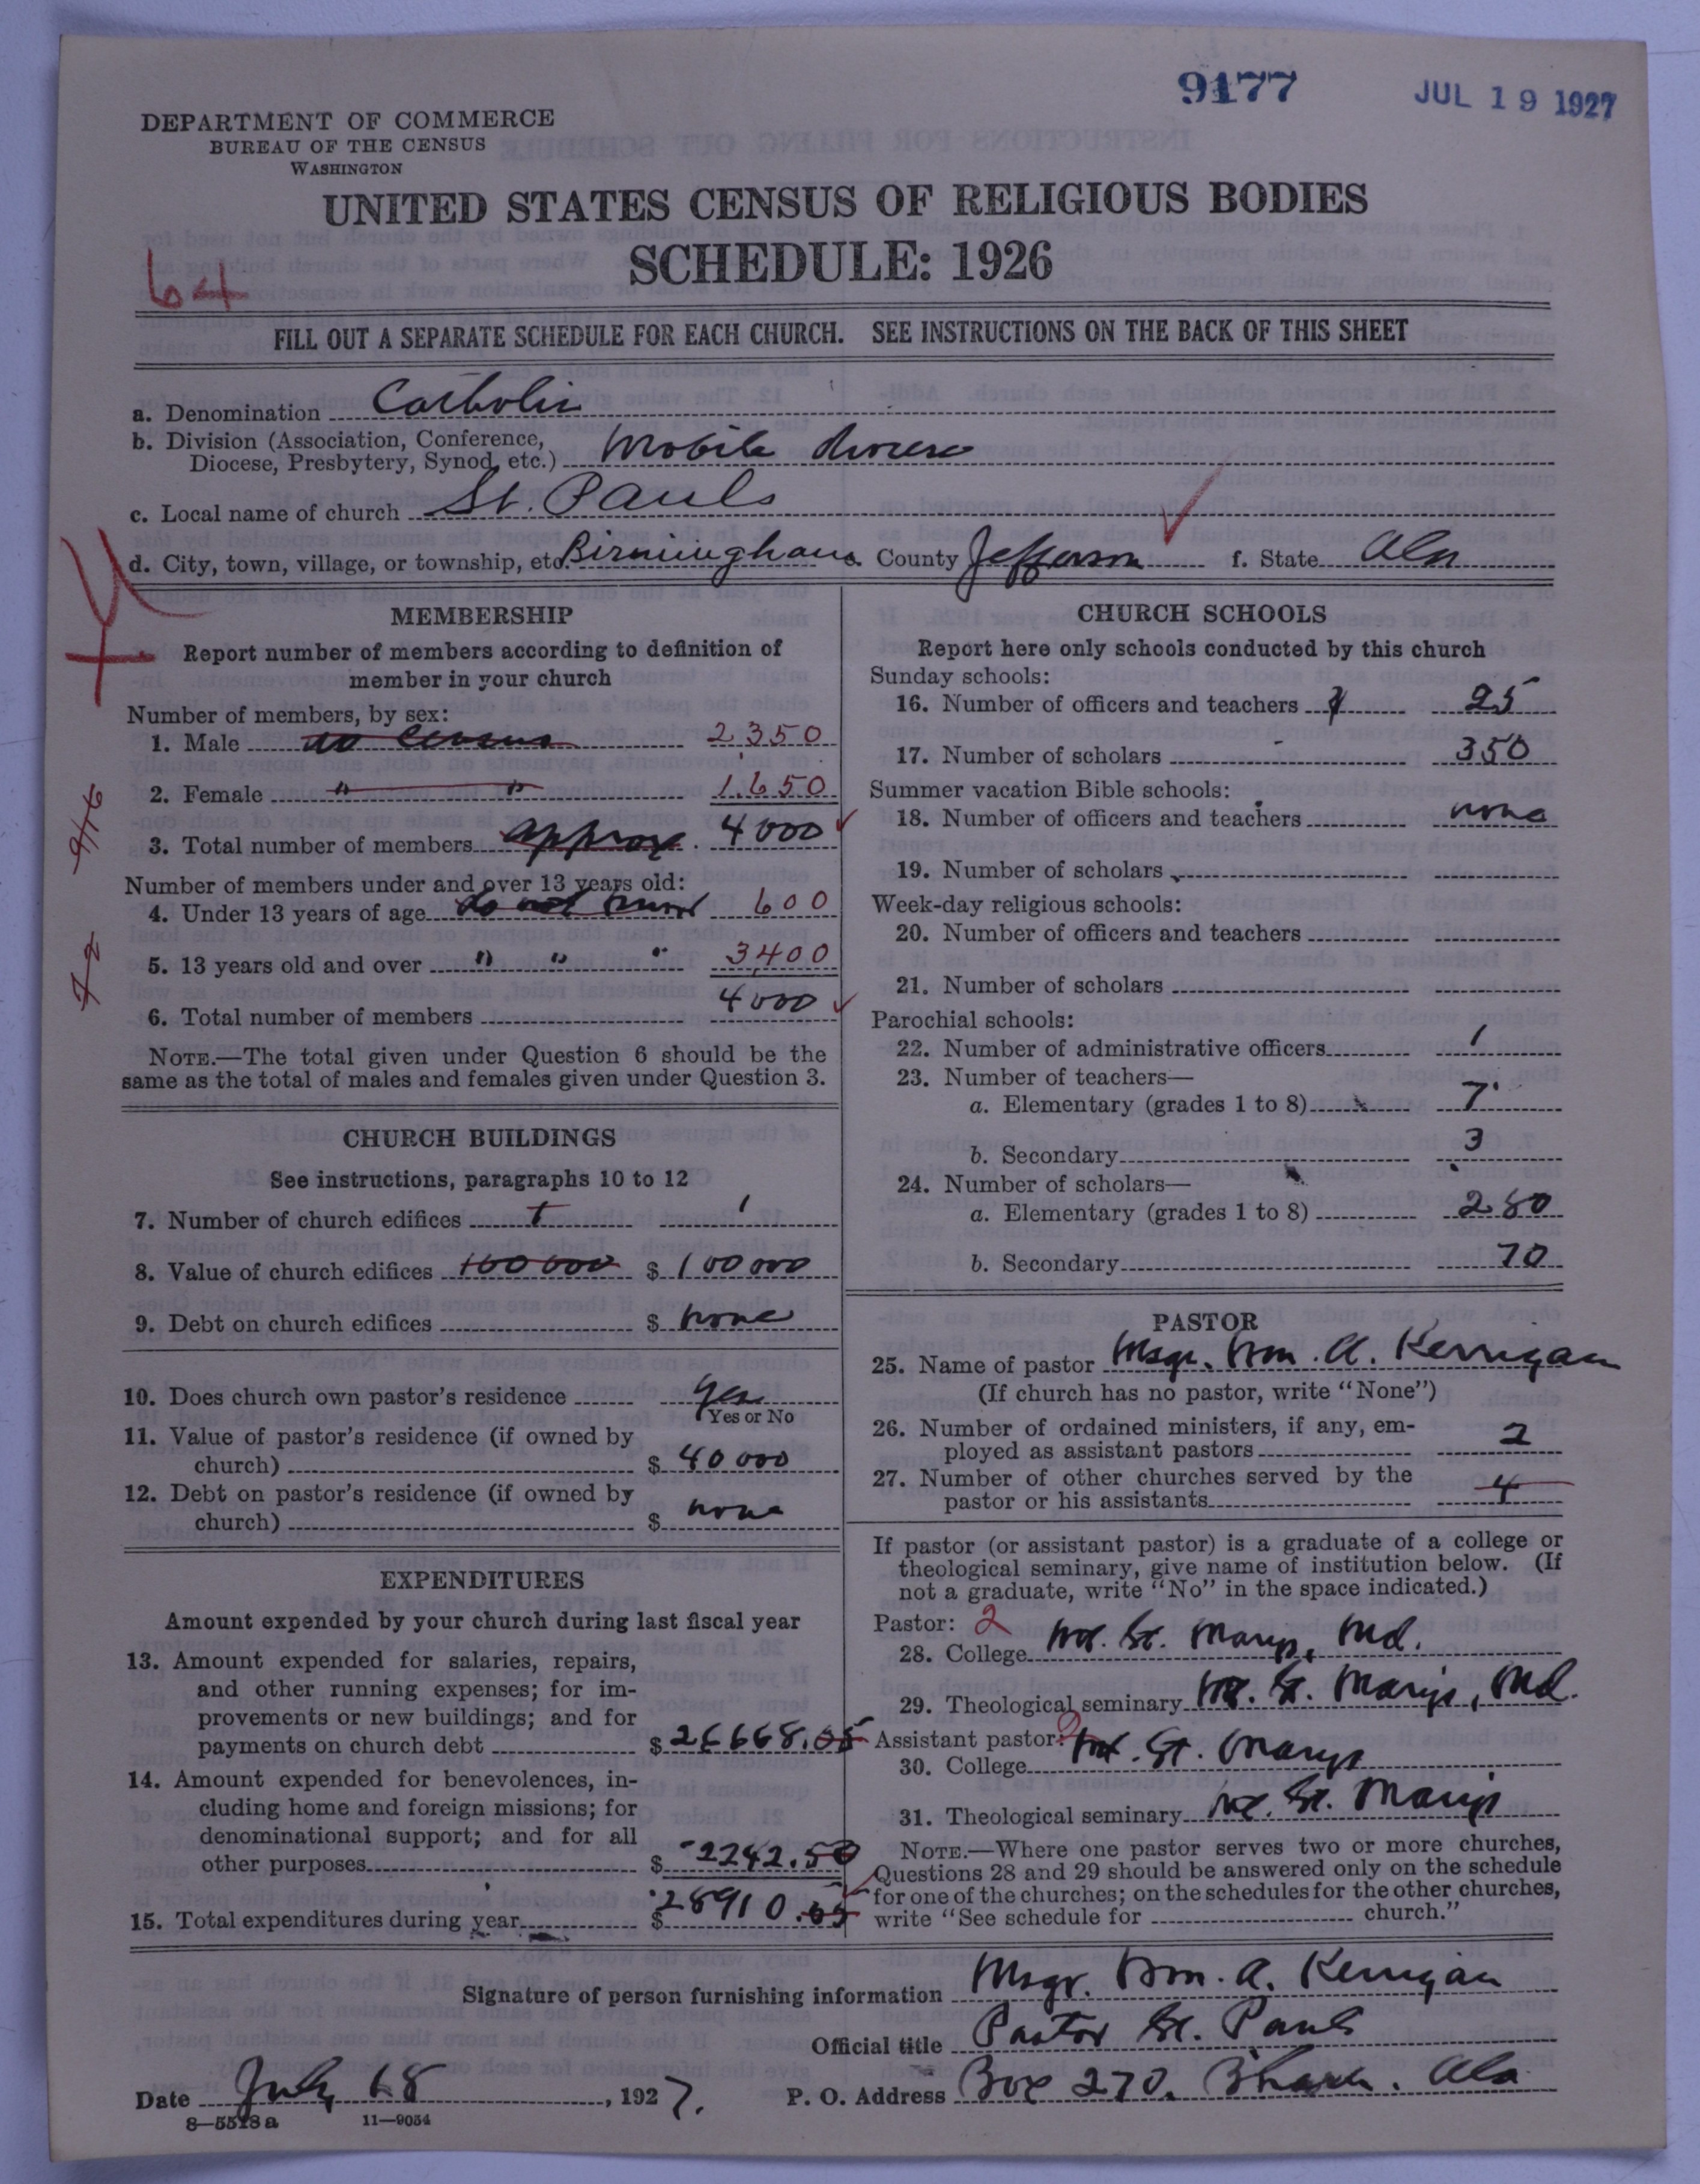 9177
JUL 19 1927
DEPARTMENT OF COMMERCE
BUREAU OF THE CENSUS
WASHINGTON
UNITED STATES CENSUS OF RELIGIOUS BODIES
SCHEDULE: 1926
64
FILL OUT A SEPARATE SCHEDULE FOR EACH CHURCH. SEE INSTRUCTIONS ON THE BACK OF THIS SHEET
a. Denomination Catholic
b. Division (Association, Conference,
Diocese, Presbytery, Synod, etc.) Mobile diocese
c. Local name of church St. Pauls
d. City, town, village, or township, etc. Birmingham County Jefferson f. State Ala
MEMBERSHIP
Report number of members according to definition of
member in your church
Number of members, by sex:
1. Male no census 2350
2. Female " " 1650
3. Total number of members approx. 4000
Number of members under and over 13 years old:
4. Under 13 years of age do not know 600
5. 13 years old and over " " " 3400
6. Total number of members 4000
NOTE.—The total given under Question 6 should be the
same as the total of males and females given under Question 3.
CHURCH BUILDINGS
See instructions, paragraphs 10 to 12
7. Number of church edifices 1 1
8. Value of church edifices 100000 $ 100000
9. Debt on church edifices $ none
10. Does church own pastor's residence yes
Yes or No
11. Value of pastor's residence (if owned by
church) $ 40000
12. Debt on pastor's residence (if owned by
church) $ none
EXPENDITURES
Amount expended by your church during last fiscal year
13. Amount expended for salaries, repairs,
and other running expenses; for im-
provements or new buildings; and for
payments on church debt $ 26668.05
14. Amount expended for benevolences, in-
cluding home and foreign missions; for
denominational support; and for all
other purposes $ 2242.50
15. Total expenditures during year $ 28910.55
CHURCH SCHOOLS
Report here only schools conducted by this church
Sunday schools:
16. Number of officers and teachers 25
17. Number of scholars 350
Summer vacation Bible schools:
18. Number of officers and teachers none
19. Number of scholars
Week-day religious schools:
20. Number of officers and teachers
21. Number of scholars
Parochial schools:
22. Number of administrative officers 1
23. Number of teachers—
a. Elementary (grades 1 to 8) 7
b. Secondary 3
24. Number of scholars—
a. Elementary (grades 1 to 8) 280
b. Secondary 70
PASTOR
25. Name of pastor Msgr. Wm. A. Kerrigan
(If church has no pastor, write "None")
26. Number of ordained ministers, if any, em-
ployed as assistant pastors 2
27. Number of other churches served by the
pastor or his assistants 4
If pastor (or assistant pastor) is a graduate of a college or
theological seminary, give name of institution below. (If
not a graduate, write "No" in the space indicated.)
Pastor: 2
28. College Mt. St. Marys, Md.
29. Theological seminary Mt. St. Marys, Md.
Assistant pastor: 2
30. College Mt. St. Marys
31. Theological seminary Mt. St. Marys
NOTE.—Where one pastor serves two or more churches,
Questions 28 and 29 should be answered only on the schedule
for one of the churches; on the schedules for the other churches,
write "See schedule for church."
Signature of person furnishing information Msgr. Wm. A. Kerrigan
Official title Pastor St. Pauls
Date July 18, 1927. P. O. Address Box 270. Bham. Ala
8—5518a 11—9054